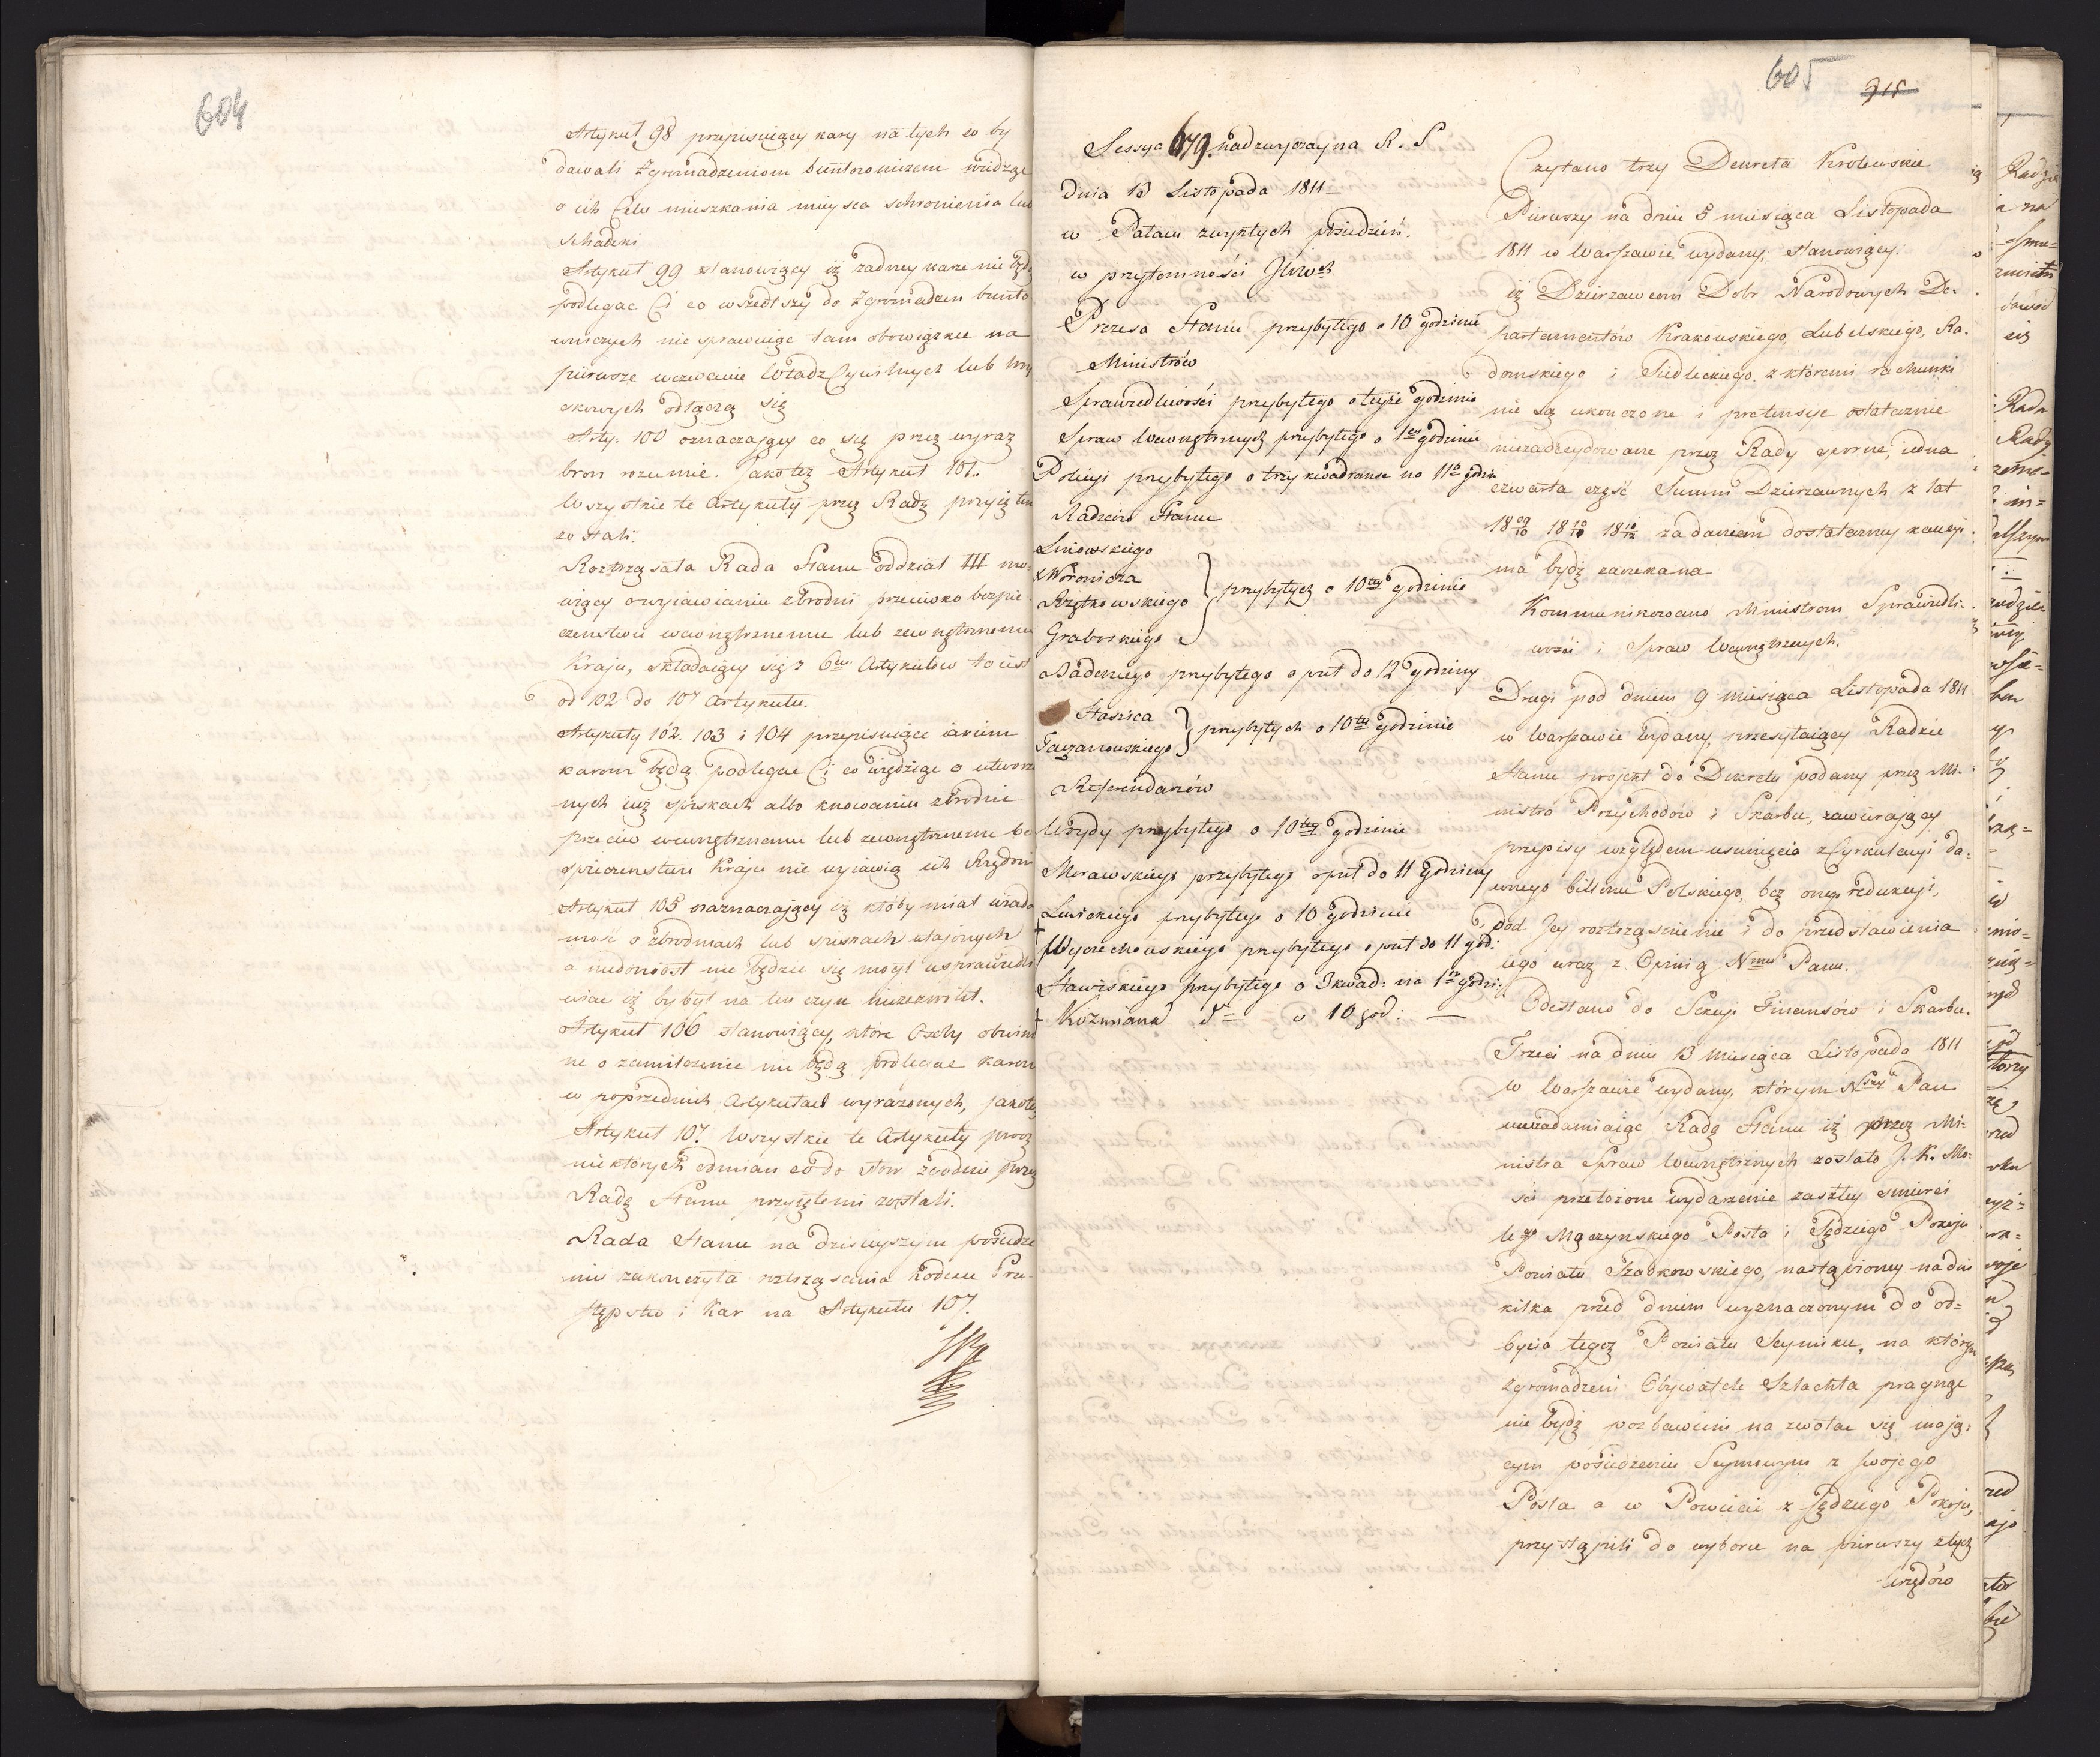 604
Artykuł 98 przepisuiący kary na tych co by
dawali Zgromadzeniom buntowniczem wiedząc
o ich Celu mieszkania mieysca schronienia lub
schadzki
Artykuł 99 stanowiący iż żadney karze nie będą
podlegać Ci co wszedłszy do Zgromadzen bunto
wniczych nie sprawuiąc tam obowiązku na
pierwsze wezwanie Władz Cywilnych lub woy
skowych odłączą się
Arty: 100 oznaczaiący co się przez wyraz
bron rozumie. Jako też Artykuł 101.
Wszystkie te Artykuły przez Radę przyięte
zostali.
Roztrząsała Rada Stanu oddział III mo=
wiący o wyiawianiu zbrodni przeciwko bezpie
czenstwu wewnętrznemu lub zewnętrznemu
Kraju, składaiący się z 6ciu Artykułów to iest
od 102 do 107 Artykułu.
Artykuły 102. 103 i 104 przepisuiące iakim
karom będą podlegać Ci co wiedząc o utworzo
nych iuż spiskach albo knowaniu zbrodni
przeciw wewnętrznemu lub zewnętrznemu be
spieczenstwu Kraju nie wyiawią ich Rządowi
Artykuł 105 oznaczaiący iż ktoby miał wiado
mość o zbrodniach lub spiskach utajonych
a niedoniosł nie będzie się mógł usprawiedli
wiać iż by był na ten czyn niezezwolił.
Artykuł 106 stanowiący, które Osoby obwinio
ne o zamilczenie nie będą podlegać karom
w poprzednich Artykułach wyrażonych, jakoteż
Artykuł 107. Wszystkie te Artykuły procz
niektórych odmian co do słow zgodnie przez
Radę Stanu przyiętemi zostali.
Rada Stanu na dzisieyszym posiedze
niu zakonczyła roztrząsania Kodexu Prze
stępstw i Kar na Artykule 107.
605
315
Sessya 679. nadzwyczayna R. S
Dnia 13 Listopada 1811
w Pałacu zwykłych posiedzień.
w przytomności JWWch
Prezesa Stanu przybyłego o 10 godzinie
Ministrów
Sprawiedliwości przybyłego o teyże godzinie
Spraw Wewnętrznych przybyłego o 1ey godzinie
Policyi przybyłego o trzy kwadranse na 11tą godzin
Radzców Stanu
Linowskiego
x Woronicza
Rzętkowskiego
Graboskiego
przybyłych o 10tey godzinie
Badeniego przybyłego o puł do 12 godziny
Staszica
Taczanowskiego
przybyłych o 10tey godzinie
Referendarzów
Urzydy przybyłego o 10tey godzinie
Morawskiego przybyłego o puł do 11 godziny
Lewickiego przybyłego o 10 godzinie
+ Wyczechowskiego przybyłego o puł do 11 god:
Stawiskiego przybyłego o 3 kwad: na 1szą godzi:
+ Kozmiana o 10 god: —
Czytano trzy Dekreta Krolewskie
Pierwszy na dniu 5 miesiąca Listopada
1811 w Warszawie wydany, stanowiący:
iż Dzierzawcom Dobr Narodowych De=
partamentów Krakowskiego, Lubelskiego, Ra=
domskiego i Siedleckiego z któremi rachunki
nie są ukonczone i pretensye ostatecznie
niezadecydowane przez Rady sporne, iedna
czwarta część Summ Dzierzawnych z lat
18 09/10 18 10/11 18 11/12 za daniem dostateczney kaucyi
ma bydź zaczekana
Kommunikowano Ministrom Sprawiedli=
wości i Spraw Wewnętrznych.
Drugi pod dniem 9 miesiąca Listopada 1811
w Warszawie wydany, przesyłaiący Radzie
Stanu projekt do Dekretu podany przez Mi=
nistra Przychodów i Skarbu, zawieraiący
przepisy względem usunięcia z Cyrkulacyi da=
wnego billonu Polskiego, bez onego redukcyi,
pod Jey roztrząśnienie i do przedstawienia
iego wraz z Opinią Nmu Panu.
Odesłano do Sekcyi Finansów i Skarbu.
Trzeci na dniu 13 Miesiąca Listopada 1811
w Warszawie wydany, którym Nszy Pan
uwiadamiaiąc Radę Stanu iż przez Mi=
nistra Spraw Wewnętrznych zostało J. K. Mo=
ści przełożone wydarzenie zaszłey śmierci
Mączynskiego Posła i Sędziego Pokoju
Powiatu Szadkowskiego, nastąpioney na dni
kilka przed dniem wyznaczonym do od=
bycia tegoż Powiatu Seymiku, na którym
zgromadzeni Obywatele Szlachta pragnąc
nie bydź pozbawieni na zwołać się mają=
cym posiedzeniu Seymowym z swojego
Posła a w Powiecie z Sędziego Pokoju,
przystąpili do wyboru na pierwszy z tych
Urzędów